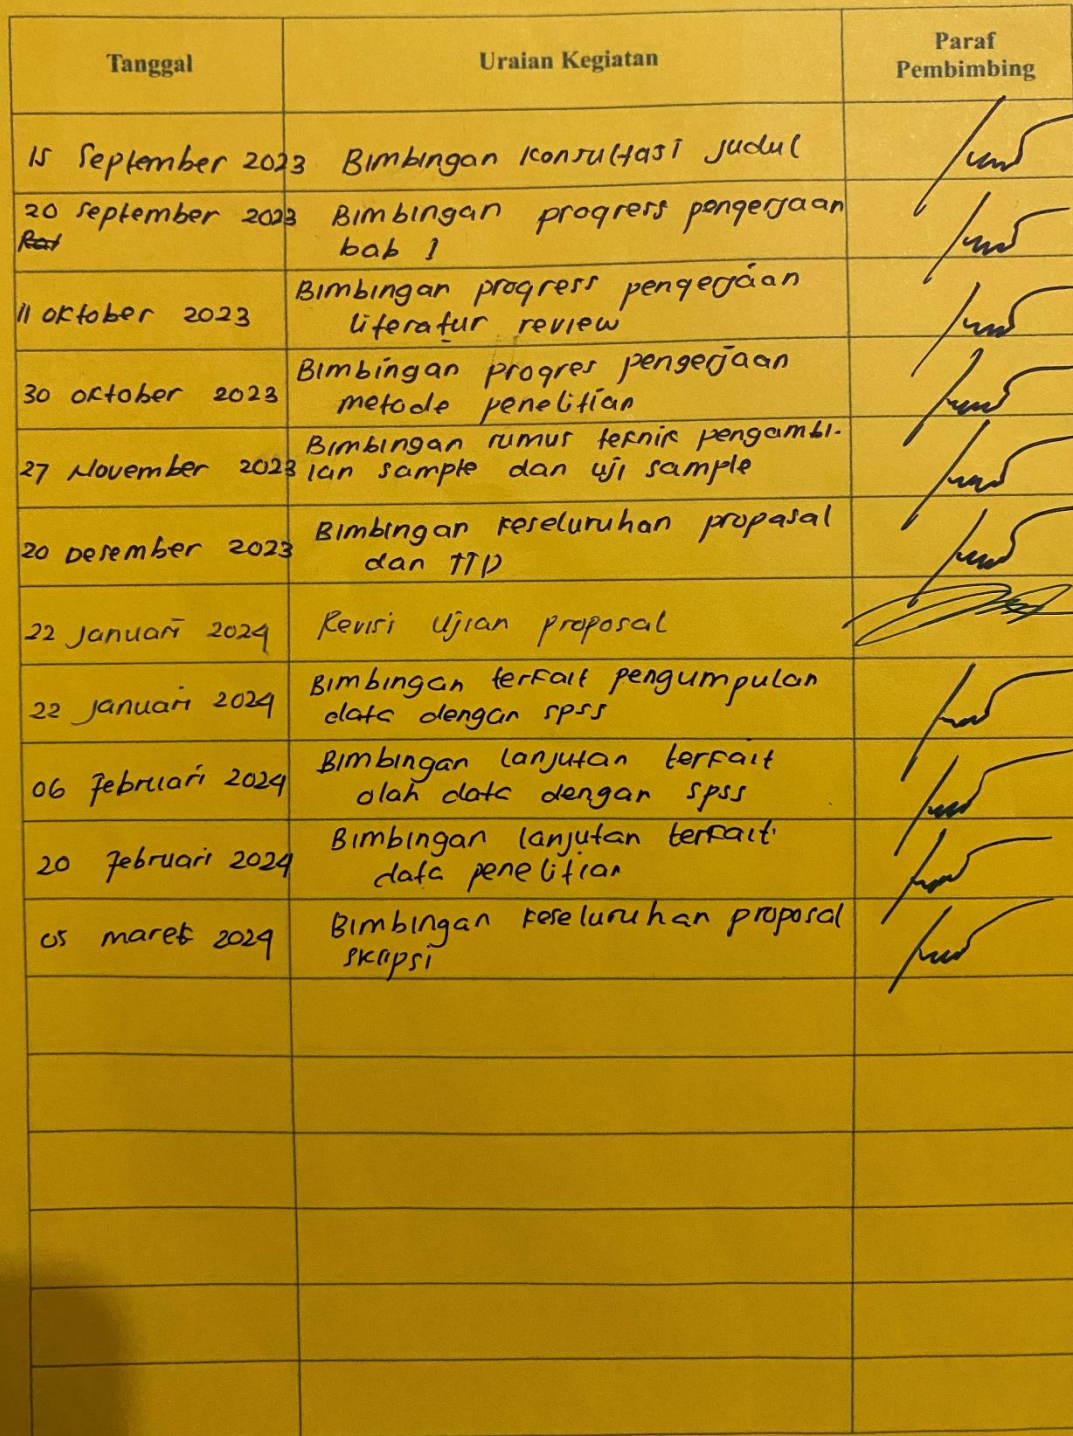 Tanggal
Uraian Kegiatan
Paraf
Pembimbing
15 September 2023 Bimbingan Konsultasi judul
20 September 2023 Bimbingan progress pengerjaan
bab 1
11 oktober 2023
Bimbingan progress pengerjaan
literatur review
30 oktober 2023
Bimbingan progres pengerjaan
metode penelitian
27 November 2023
Bimbingan rumus teknik pengambi-
lan sample dan uji sample
20 Desember 2023
Bimbingan keseluruhan propasal
dan TTD
22 Januari 2024 Revisi Ujian proposal
22 Januari 2024
Bimbingan terkait pengumpulan
data dengan spss
06 Februari 2024
Bimbingan lanjutan terkait
olah data dengan spss
20 Februari 2024
Bimbingan lanjutan terkait
data penelitian
05 maret 2024
Bimbingan keseluruhan proposal
skripsi